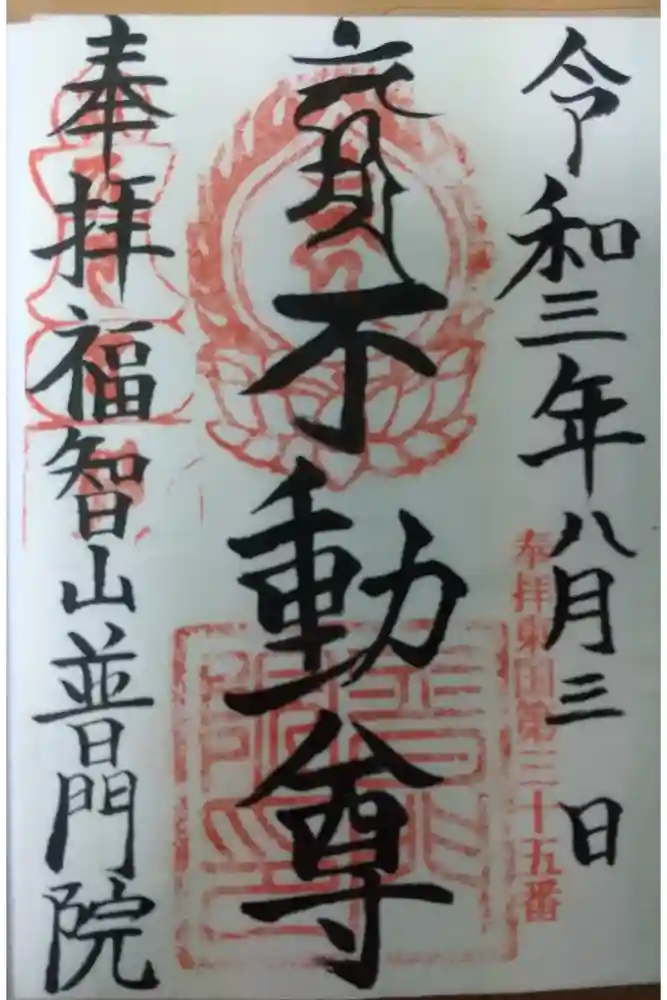 令和三年八月三日
奉拝東国第三十五番
不動尊
普門院印
奉拝福智山普門院